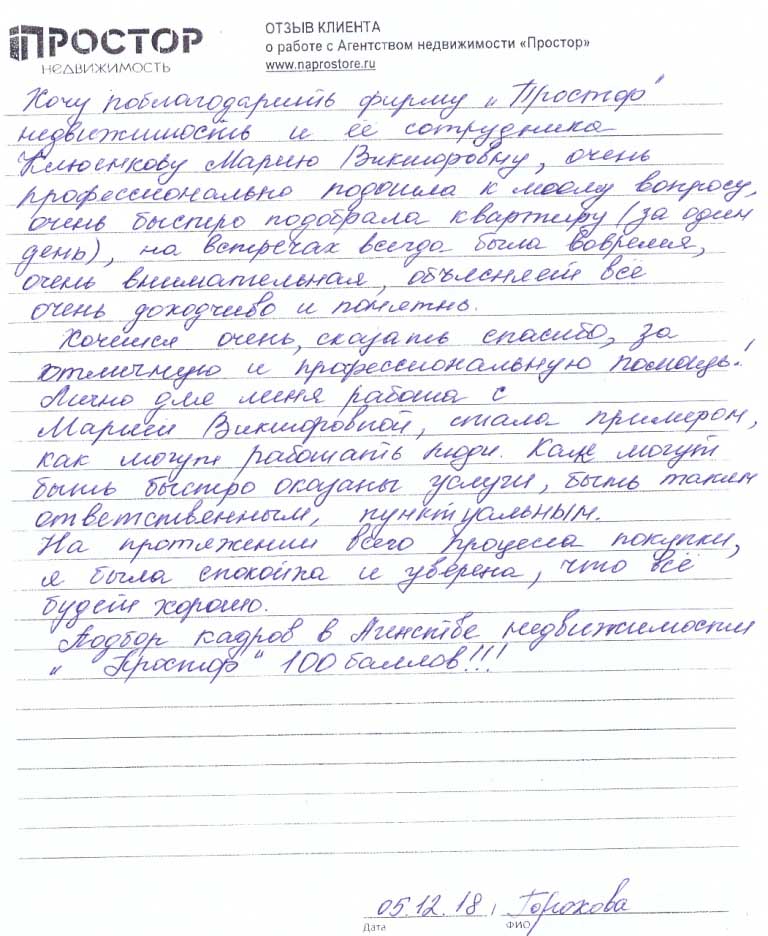 ПРОСТОР
НЕДВИЖИМОСТЬ
ОТЗЫВ КЛИЕНТА
о работе с Агентством недвижимости «Простор»
www.naprostore.ru
Хочу поблагодарить фирму „Простор"
недвижимость и её сотрудника
Клюенкову Марию Викторовну, очень
профессионально подошла к моему вопросу,
очень быстро подобрала квартиру (за один
день), на встречах всегда была вовремя,
очень внимательная, объясняет всё
очень доходчиво и понятно.
Хочется очень, сказать спасибо, за
отличную и профессиональную помощь!
Лично для меня работа с
Марией Викторовной, стала примером,
как могут работать люди. Как могут
быть быстро оказаны услуги, быть таким
ответственным, пунктуальным.
На протяжении всего процесса покупки,
я была спокойна и уверена, что всё
будет хорошо.
Подбор кадров в Агенстве недвижимости
„Простор" 100 баллов!!!
05.12.18, Горохова
Дата ФИО